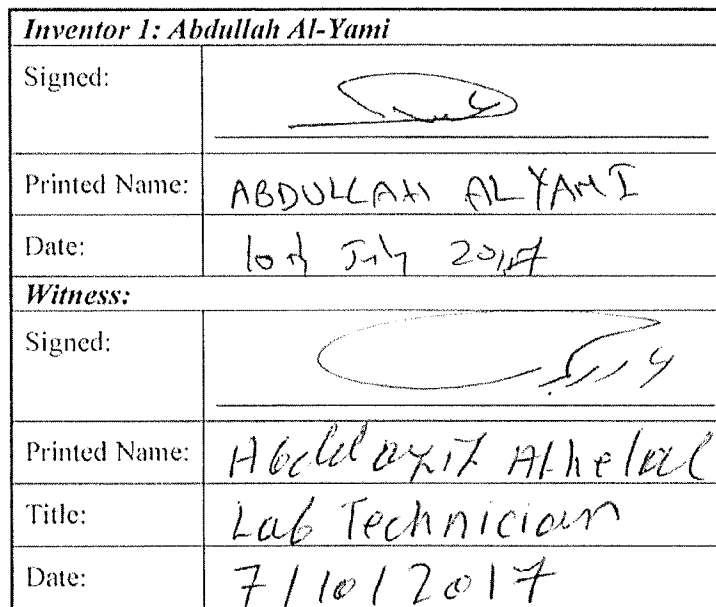 Inventor 1: Abdullah Al-Yami
Signed:
Printed Name: ABDULLAH AL YAMI
Date: 10th July 2017
Witness:
Signed:
Printed Name: Abdulaziz Alhelal
Title: Lab Technician
Date: 7/10/2017